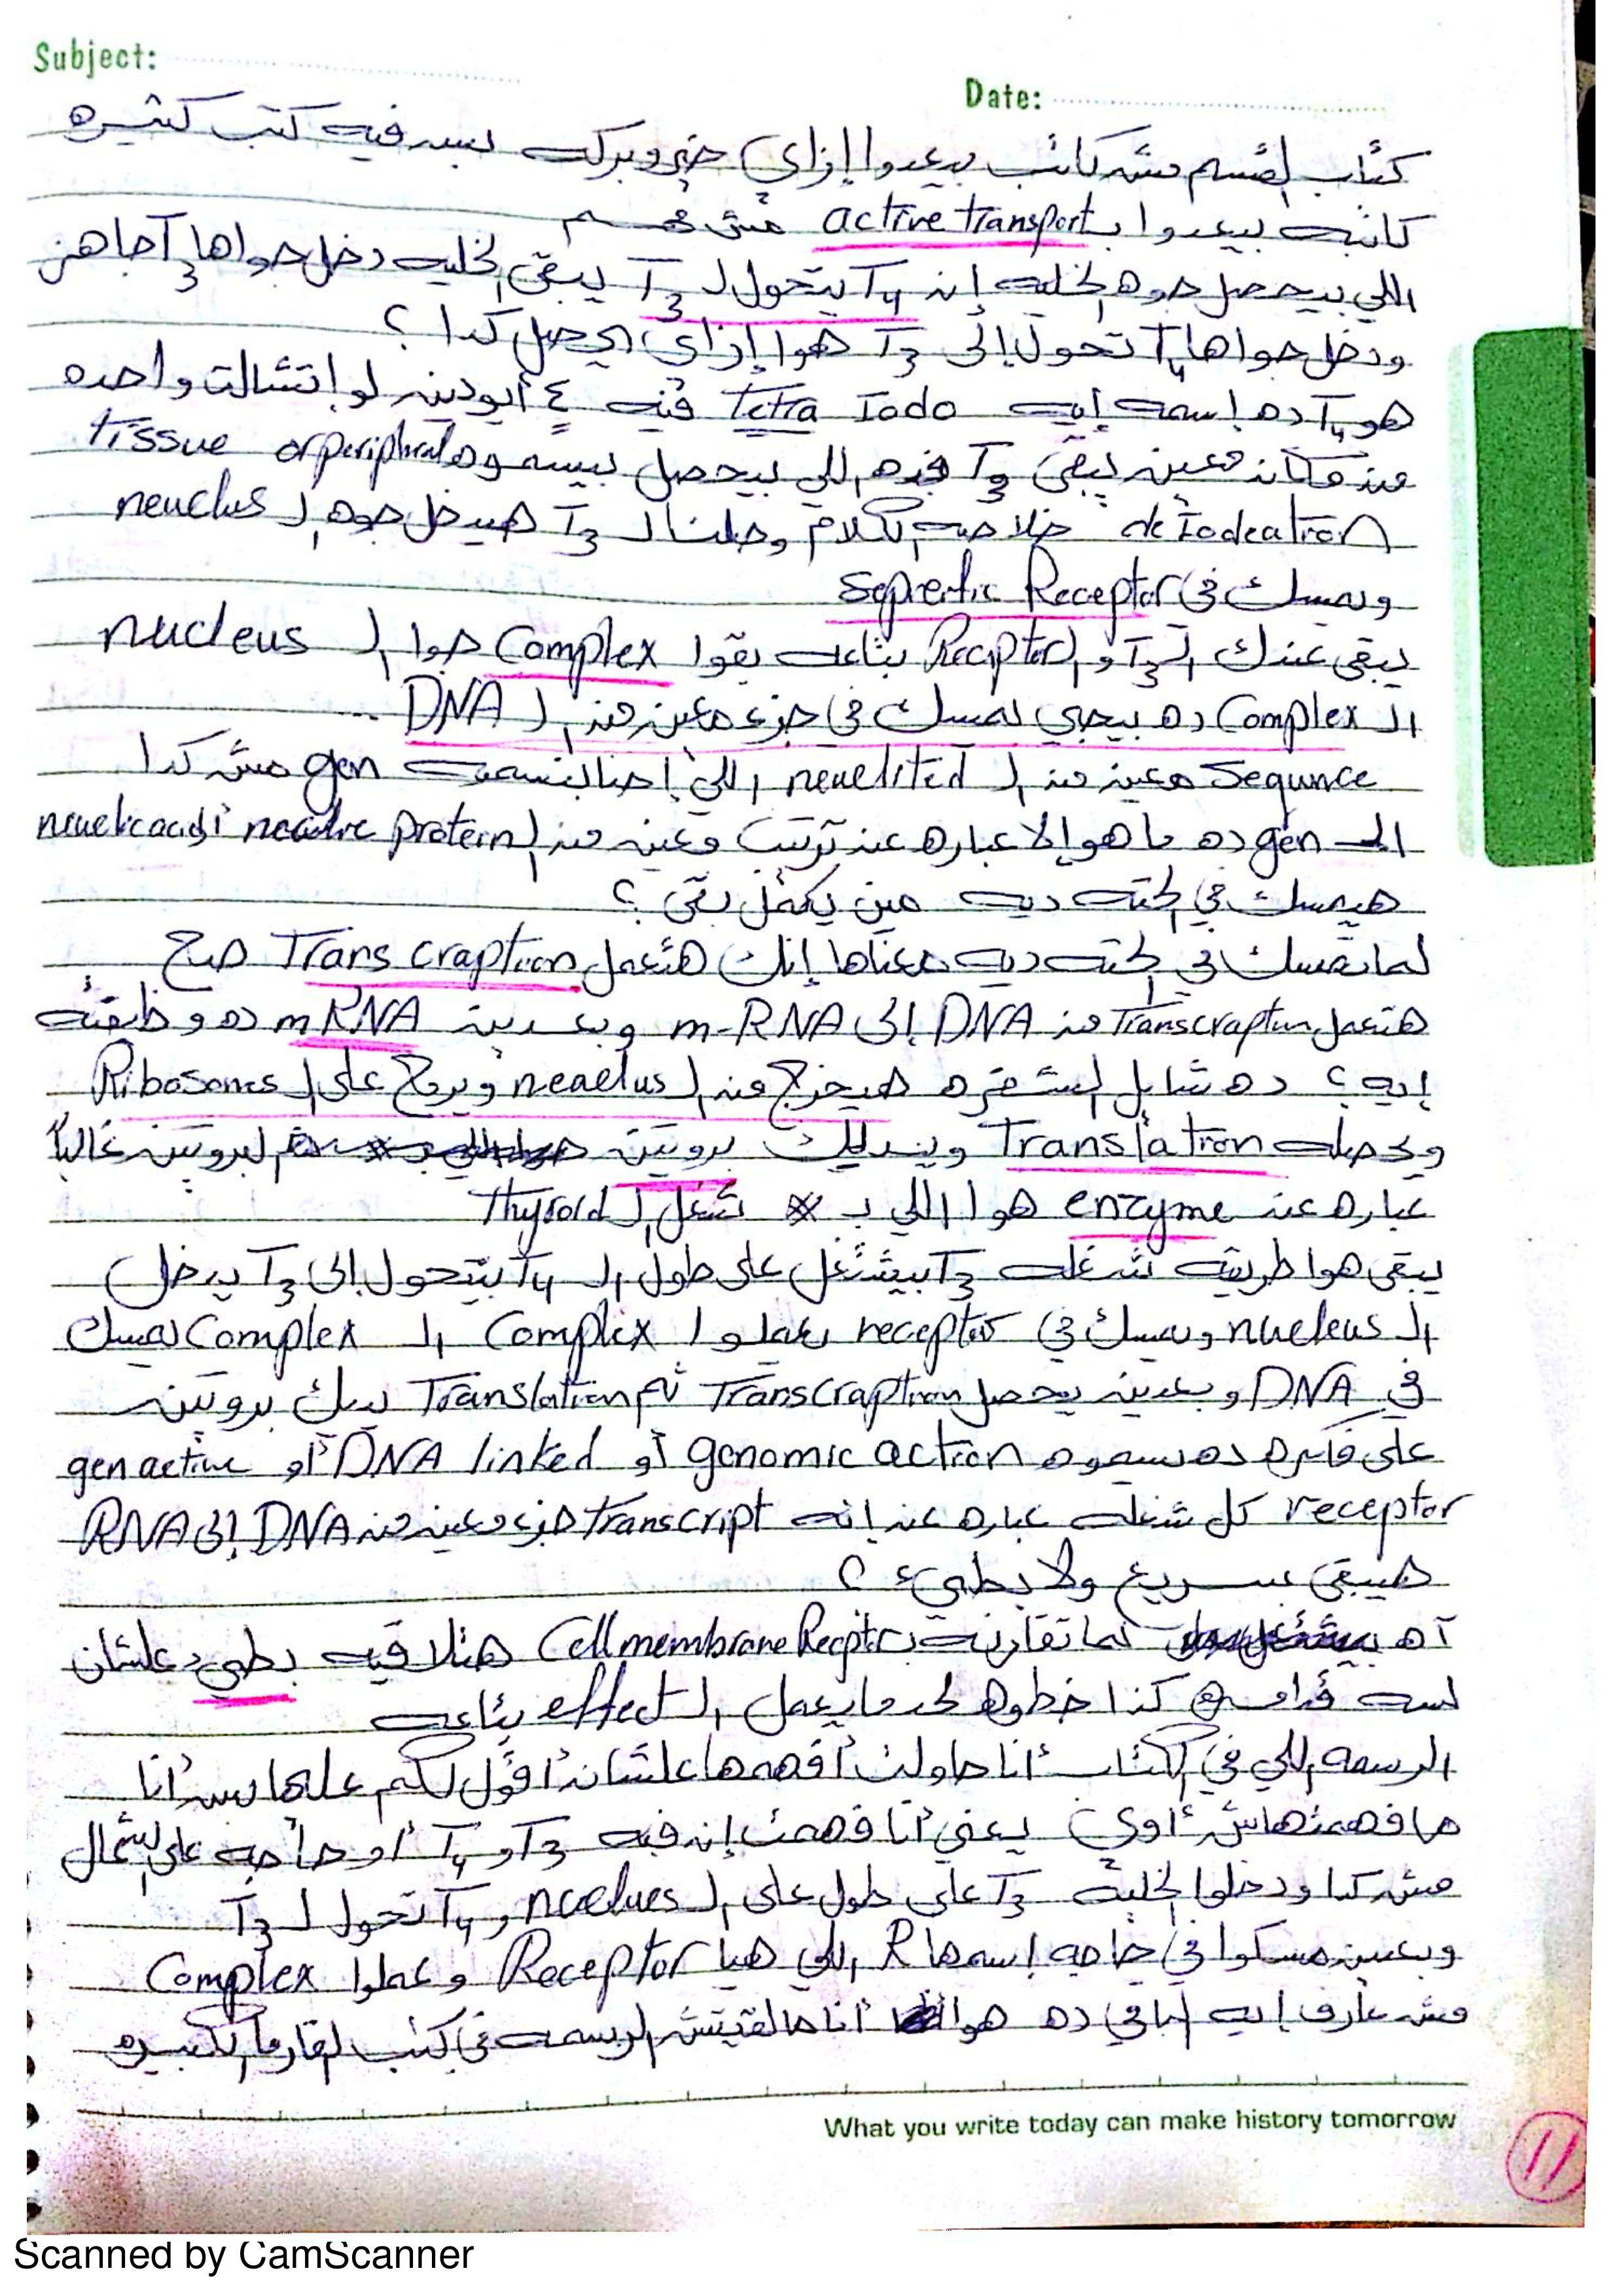 Subject:
Date:
كتاب القسم مش كاتب بيعدوا إزاي بس فيه كتب كثيره
كاتبه بيعدوا بـ active transport مش مهم
اللي بيحصل جوه الخليه إن T4 يتحول لـ T3 يبقى الخليه دخل جواها T3 جاهز
ودخل جواها T4 تحول إلى T3 هوا إزاي بيحصل كدا ؟
هو T4 ده إسمه إيه Tetra Iodo فيه ٤ أيودين لو إتشالت واحده
من مكان معين يبقى T3 اللي بيحصل بيسموه peripheral tissue
deIodeation خلاصه الكلام وصلنا لـ T3 هيدخل جوه الـ neuclus
ويمسك في Receptor
يبقى عندك الـ T3 و الـ Receptor بتاعه بقوا Complex جوا الـ nucleus
الـ Complex ده بيجي يمسك في جزء معين من الـ DNA
Sequnce معين من الـ اللي إحنا بنسميه gen مش كدا
الـ gen ده ما هو إلا عباره عن ترتيب معين من الـ protein
هيمسك في الحته ديه مين يكمل بقى ؟
لما تمسك في الحته ديه معناها إنك هتعمل Trans craption صح
هتعمل Transcraption من DNA إلى m-RNA وبعدين mRNA ده وظيفته
إيه ؟ ده شايل الشفره هيخرج من الـ neaelus ويروح على الـ Ribosomes
ويحصله Translation ويديلك بروتين البروتين غالباً
عباره عن enzyme هوا اللي بـ شغل الـ Thyroid
يبقى هوا طريقه شغله T3 بيشتغل على طول الـ T4 بيتحول إلى T3 يدخل
الـ nueleus ويمسك في receptor يعملوا Complex الـ Complex يمسك
في DNA وبعدين يحصل Transcraption ثم Translation يديك بروتين
على فكره ده بيسموه genomic action أو DNA linked أو gen active
receptor كل شغله عباره عن إنه transcript جزء معين من DNA إلى RNA
هيبقى سريع ولا بطيء ؟
آه لما تقارنه بـ Cell membrane Recptr هتلاقيه بطيء علشان
لسه قدامه كذا خطوه لحد ما يعمل الـ effect بتاعه
الرسمه اللي في الكتاب أنا حاولت أفهمها علشان أقول لكم عليها بس أنا
ما فهمتهاش أوي يعني أنا فهمت إن فيه T3 و T4 أو حاجه على الشمال
مش كدا ودخلوا الخليه T3 على طول على الـ nuelues و T4 تحول لـ T3
وبعدين مسكوا في حاجه إسمها R اللي هيا Receptor وعملوا Complex
مش عارف إيه الباقي ده هوا أنا ما لقيتش الرسمه في كتب الكبيره
What you write today can make history tomorrow
11
Scanned by CamScanner